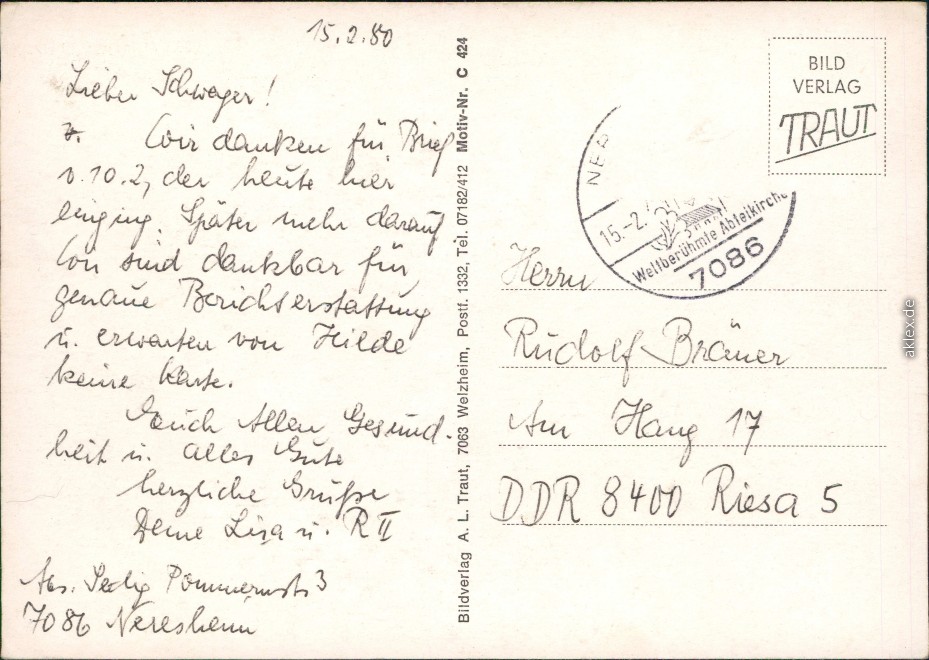 15.2.80
Lieber Schwager!
Wir danken für Brief
v. 10.2, der heute hier
einging. Später mehr darauf
Wir sind dankbar für
genaue Berichterstattung
u. erwarten von Hilde
keine Karte.
Euch Allen Gesund-
heit u. alles Gute
herzliche Grüße
Deine Lisa u. R II
Abs. Sedig Pommernstr 3
7086 Neresheim
Bildverlag A. L. Traut, 7063 Welzheim, Postf. 1332, Tel. 07182/412 Motiv-Nr. C 424
BILD
VERLAG
TRAUT
NER
15.-2.
Weltberühmte Abteikirche
7086
Herrn
Rudolf Bräuer
Am Hang 17
DDR 8400 Riesa 5
aklex.de